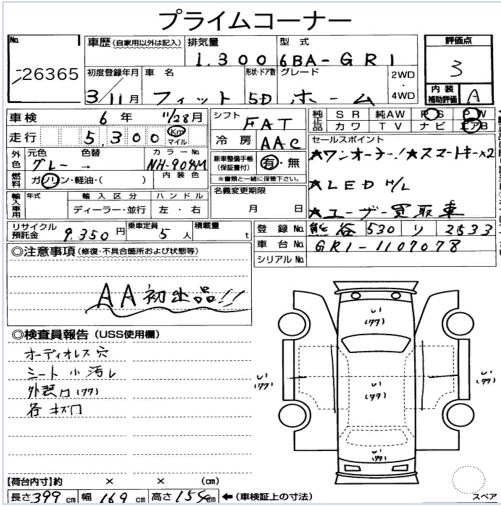 プライムコーナー
No.
26365
車歴 (自家用以外は記入)
排気量
1.300
型式
6BA-GR1
評価点
3
内装補助評価 A
初度登録年月
3/11月
車名
フィット
形状・ドア数
5D
グレード
ホーム
2WD
4WD
車検 6年 11/28月
走行 5,300 Km マイル
シフト FAT
冷房 AAC
純正品 SR 純AW PS PW
カワ TV ナビ エアB
外色 元色 グレー → 色替
カラーNo.
NH-904M
燃料 ガソリン・軽油・( )
内装色
新車整備手帳
(保証書付) 有・無
※書類と一緒に保管下さい。
セールスポイント
★ワンオーナー!★スマートキー×2
★LED H/L
★ユーザー買取車
輸入車用 年式 輸入区分 ハンドル
ディーラー・並行 左・右
名義変更期限
月 日
リサイクル預託金 9,350円
乗車定員 5人
積載量 t
登録No. 530 リ 2533
車台No. GR1-1107078
シリアルNo.
◎注意事項 (修復・不具合箇所および状態等)
AA初出品!!
◎検査員報告 (USS使用欄)
オーディオレス穴
シート小汚レ
各キズ凹
【荷台内寸】約 × × (cm)
長さ399cm 幅169cm 高さ154cm ←(車検証上の寸法)
スペア